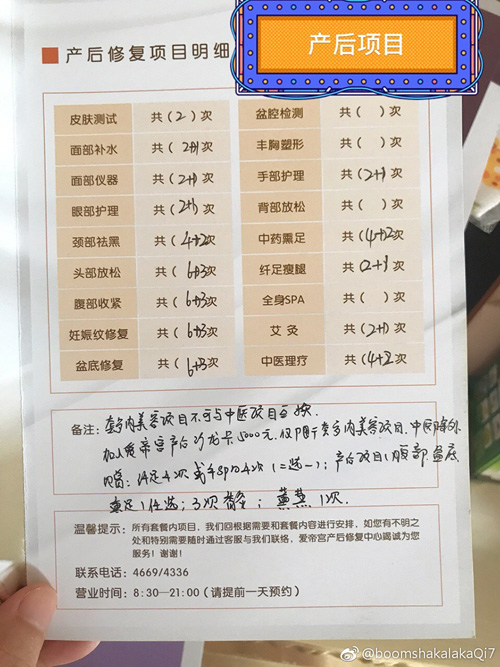 产后项目
产后修复项目明细
皮肤测试 共(2)次 盆腔检测 共( )次
面部补水 共(2+1)次 丰胸塑形 共( )次
面部仪器 共(2+1)次 手部护理 共(2+1)次
眼部护理 共(2+1)次 背部放松 共( )次
颈部祛黑 共(4+2)次 中药熏足 共(4+2)次
头部放松 共(6+3)次 纤足瘦腿 共(2+1)次
腹部收紧 共(6+3)次 全身SPA 共( )次
妊娠纹修复 共(6+3)次 艾灸 共(2+1)次
盆底修复 共(6+3)次 中医理疗 共(4+2)次
备注：套餐内美容项目不可与中医项目互换.
加入爱帝宫产后沙龙卡5000元.仅限于套餐内美容项目,中医除外
4次 4次(二选一);产后项目:腹部盆底
任选;3次 ; 1次.
温馨提示：所有套餐内项目，我们回根据需要和套餐内容进行安排，如您有不明之
处和特别需要随时通过客服与我们联络，爱帝宫产后修复中心竭诚为您
服务！谢谢！
联系电话：4669/4336
营业时间：8:30—21:00（请提前一天预约）
@boomshakalakaQi7